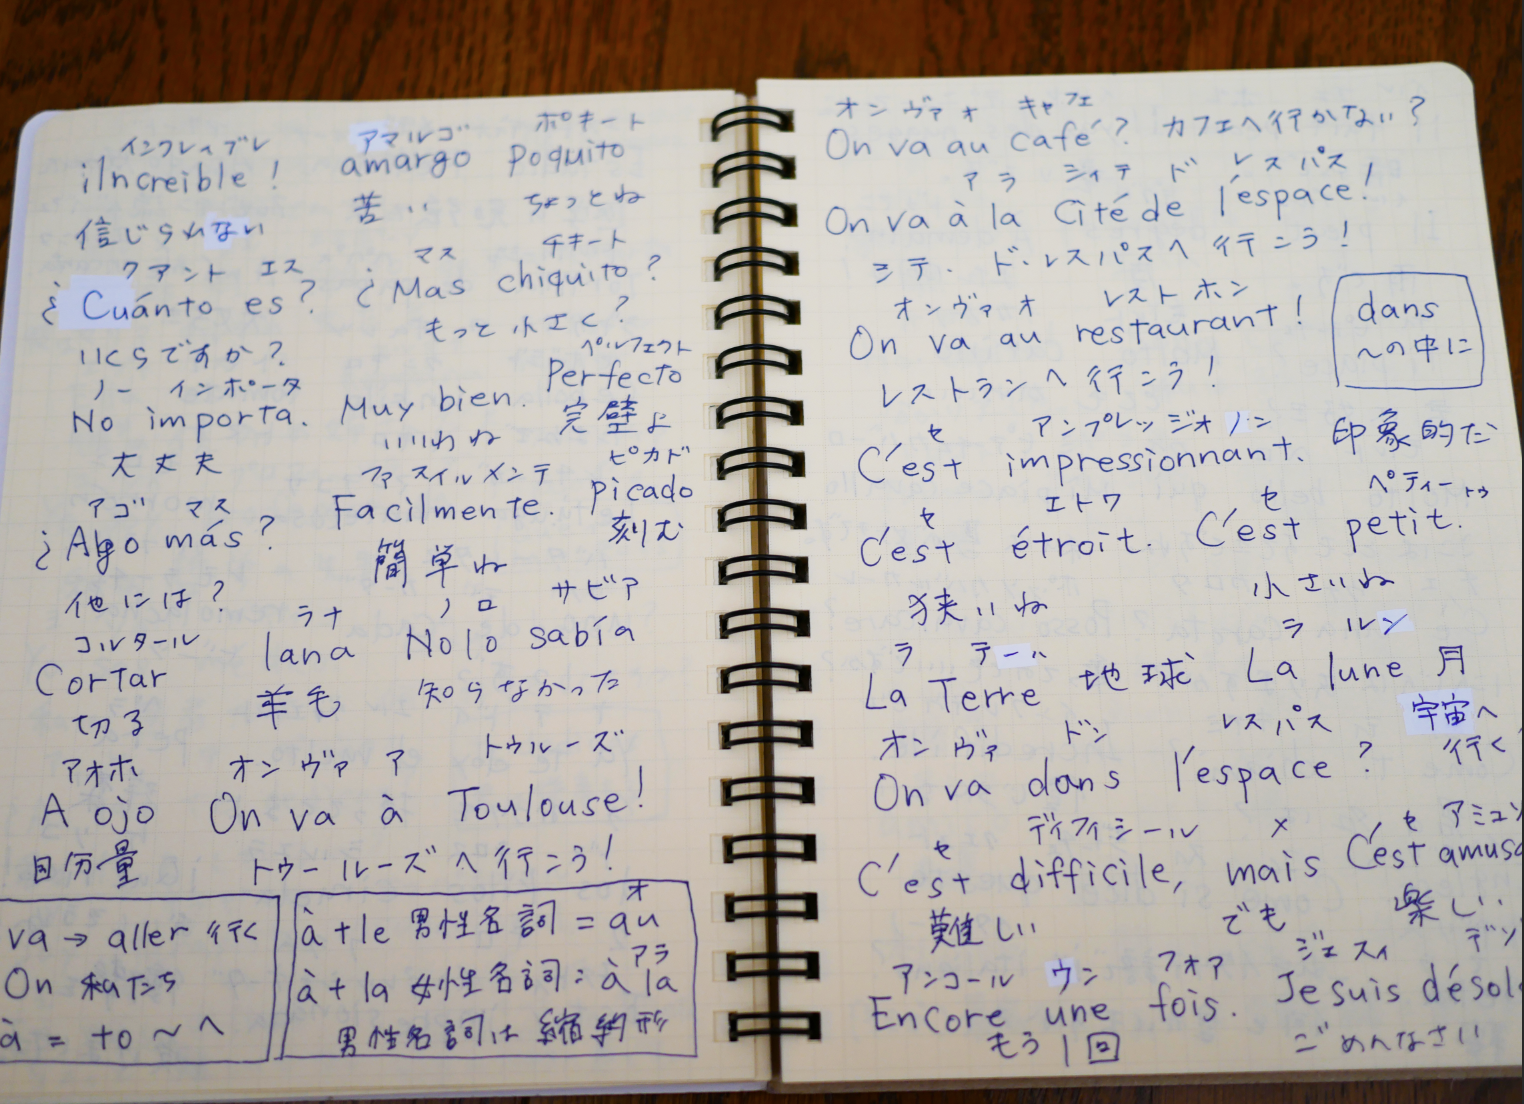 インクレイブレ アマルゴ ポキート
¡Increible! amargo poquito
信じられない 苦い ちょっとね
クアント エス マス チキート
¿Cuánto es? ¿Mas chiquito?
いくらですか? もっと小さく?
ノー インポータ ペルフェクト
No importa. Muy bien. Perfecto
大丈夫 いいわね 完璧よ
アゴ マス ファスイルメンテ ピカド
¿Algo más? Facilmente. picado
他には? 簡単ね 刻む
コルタール ラナ ノ ロ サビア
Cortar lana No lo sabía
切る 羊毛 知らなかった
アオホ オン ヴァ ア トゥルーズ
A ojo On va à Toulouse!
目分量 トゥールーズへ行こう!
va → aller 行く
On 私たち
à = to ~へ
オ
à + le 男性名詞 = au
アラ
à + la 女性名詞 : à la
男性名詞は 縮約形
オン ヴァ オ キャフェ
On va au café? カフェへ行かない?
ア ラ シィテ ド レスパス
On va à la Cité de l'espace!
シテ・ド・レスパスへ行こう!
オン ヴァ オ レストホン
On va au restaurant!
レストランへ行こう!
dans
~の中に
セ アンプレッジオノン
C'est impressionnant. 印象的だ
セ エトワ セ ペティートゥ
C'est étroit. C'est petit.
狭いね 小さいね
ラ テーヌ ラ ルン
La Terre 地球 La lune 月
オン ヴァ ドン レスパス
On va dans l'espace? 宇宙へ行く
セ ディフィシール メ セ アミュ
C'est difficile, mais C'est amusa
難しい でも 楽しい
アンコール ウン フォア ジェスィ デゾ
Encore une fois. Je suis désol
もう1回 ごめんなさい